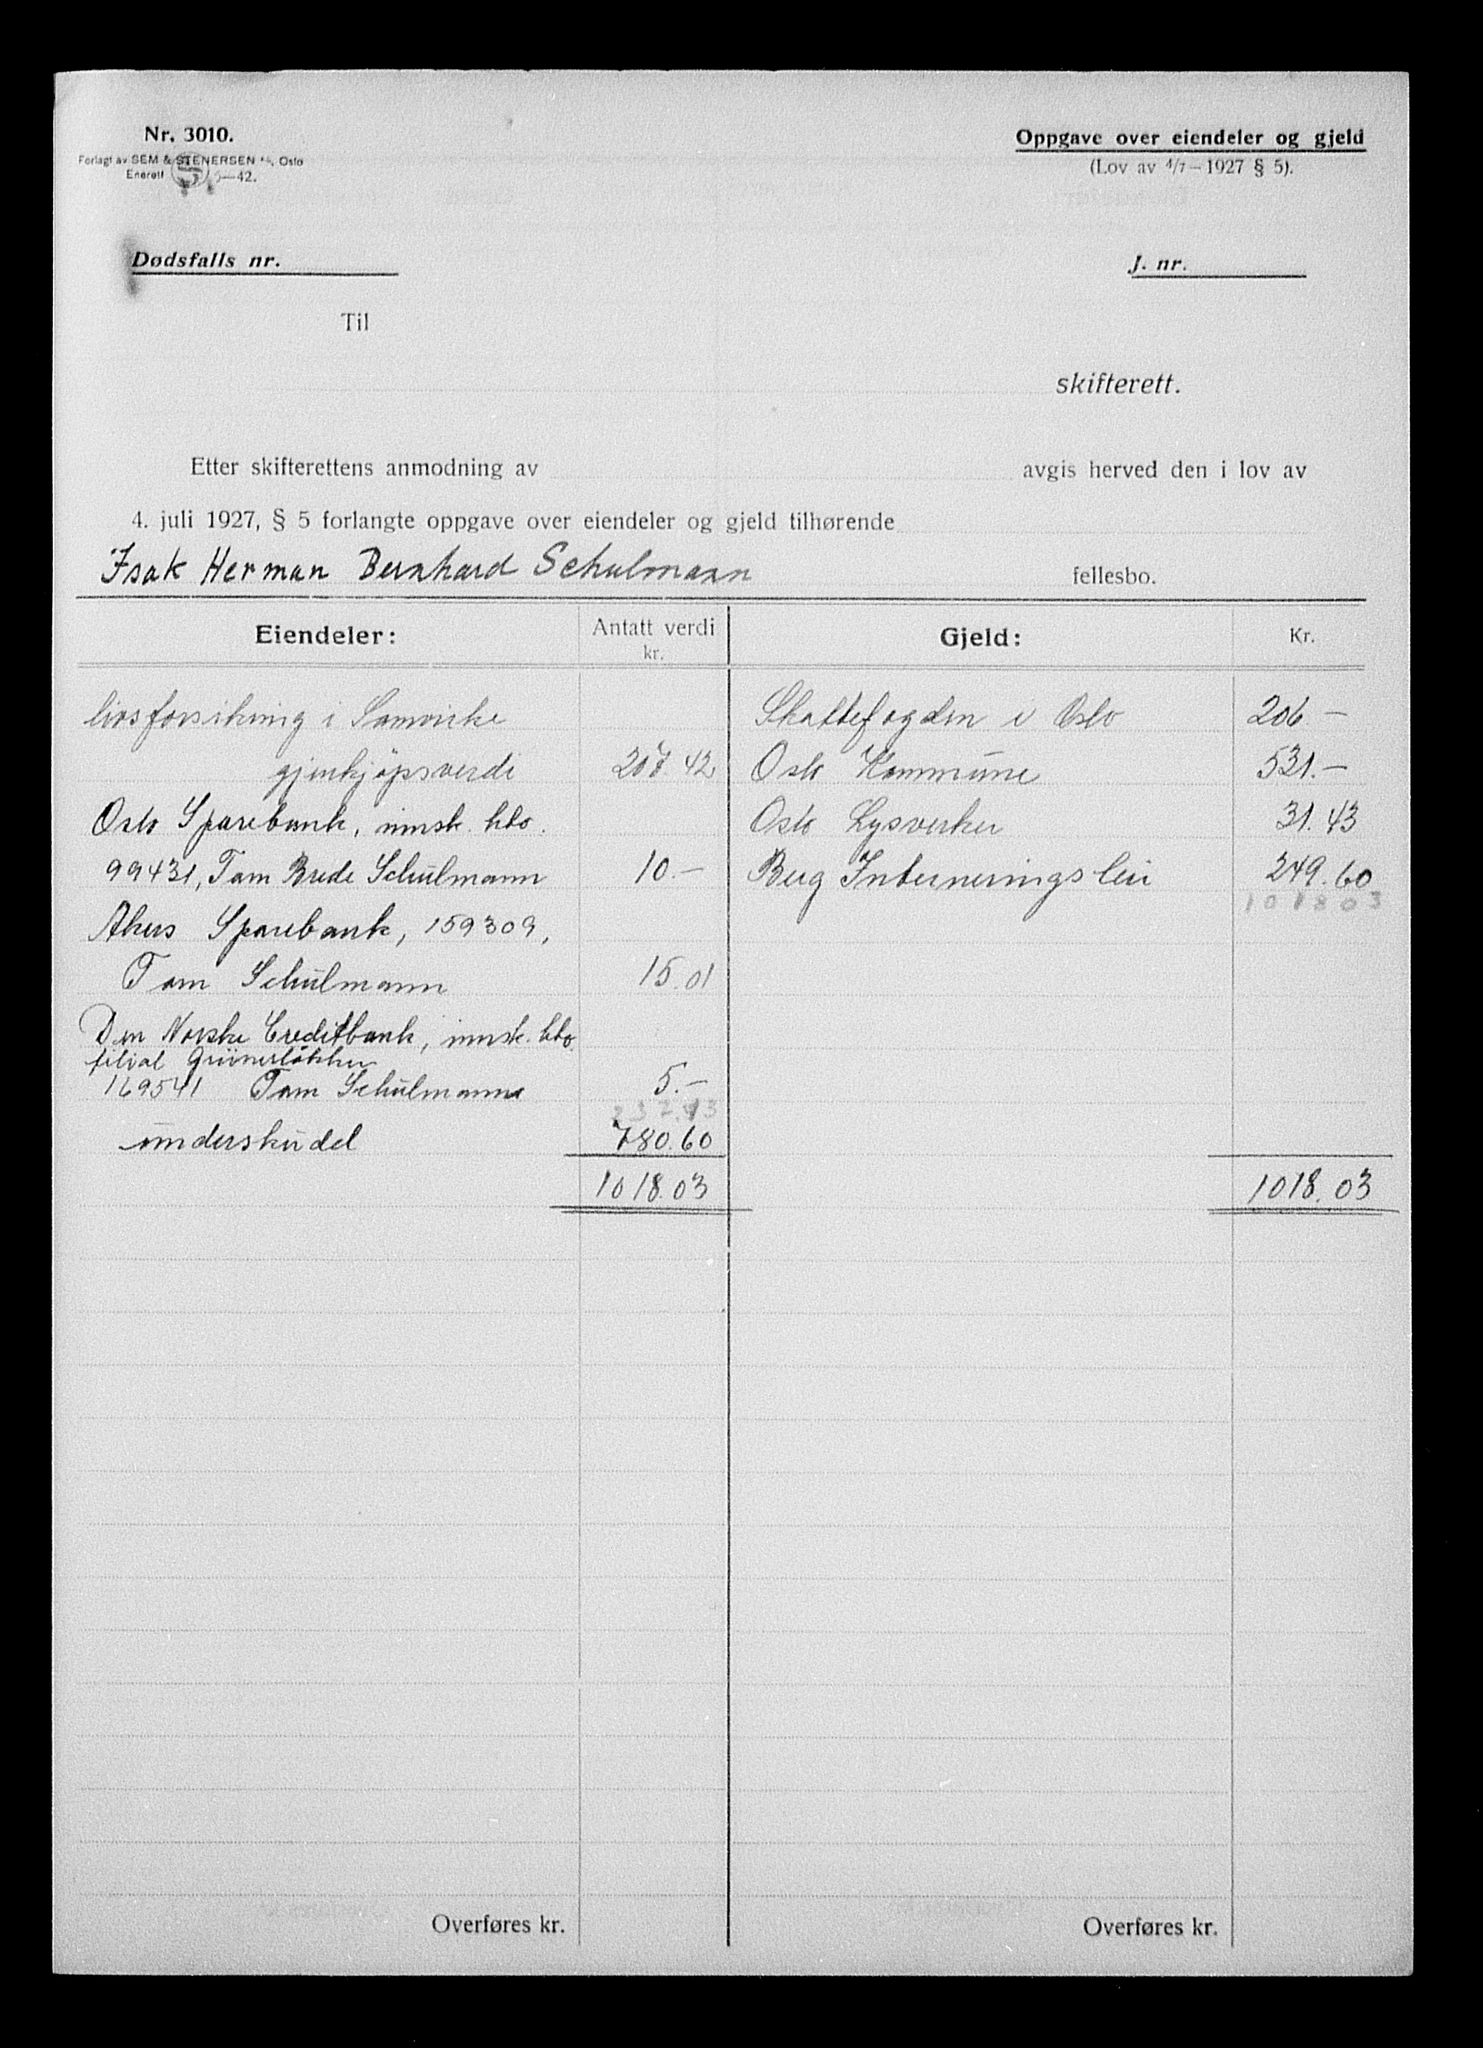 Nr. 3010.
Forlagt av SEM & STENERSEN A/S, Oslo
Enerett 5—42.
Oppgave over eiendeler og gjeld
(Lov av 4/7—1927 § 5).
Dødsfalls nr.
J. nr.
Til
skifterett.
Etter skifterettens anmodning av avgis herved den i lov av
4. juli 1927, § 5 forlangte oppgave over eiendeler og gjeld tilhørende
Isak Herman Bernhard Schulmann fellesbo.
Eiendeler: Antatt verdi Gjeld: Kr.
kr.
livsforsikring i Samvirke Skattefogden i Oslo 206.—
gjenkjøpsverdi 207.42 Oslo Kommune 531.—
Oslo Sparebank, innsk. kto. Oslo Lysverker 31.43
99431, Tom Brede Schulmann 10.— Berg Interneringsleir 249.60
101803
Akers Sparebank, 159309,
Tom Schulmann 15.01
Den Norske Creditbank, innsk. kto.
filial Grünerløkken
169541 Tom Schulmann 5.—
237.43
underskudd 780.60
1018.03 1018.03
Overføres kr. Overføres kr.